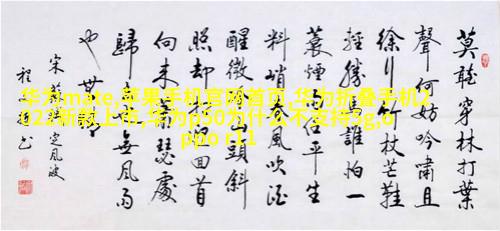 莫聽穿林打葉
聲何妨吟嘯且
徐行竹杖芒鞋
輕勝馬誰怕一
蓑煙任平生
料峭風吹酒
醒微山頭斜
照却迎回首
向来蕭瑟處
歸去無風雨
也無
宋蘇定風波
程
华为mate,苹果手机官网首页,华为折叠手机2
023新款上市,华为p50为什么不支持5g,o
ppo r11